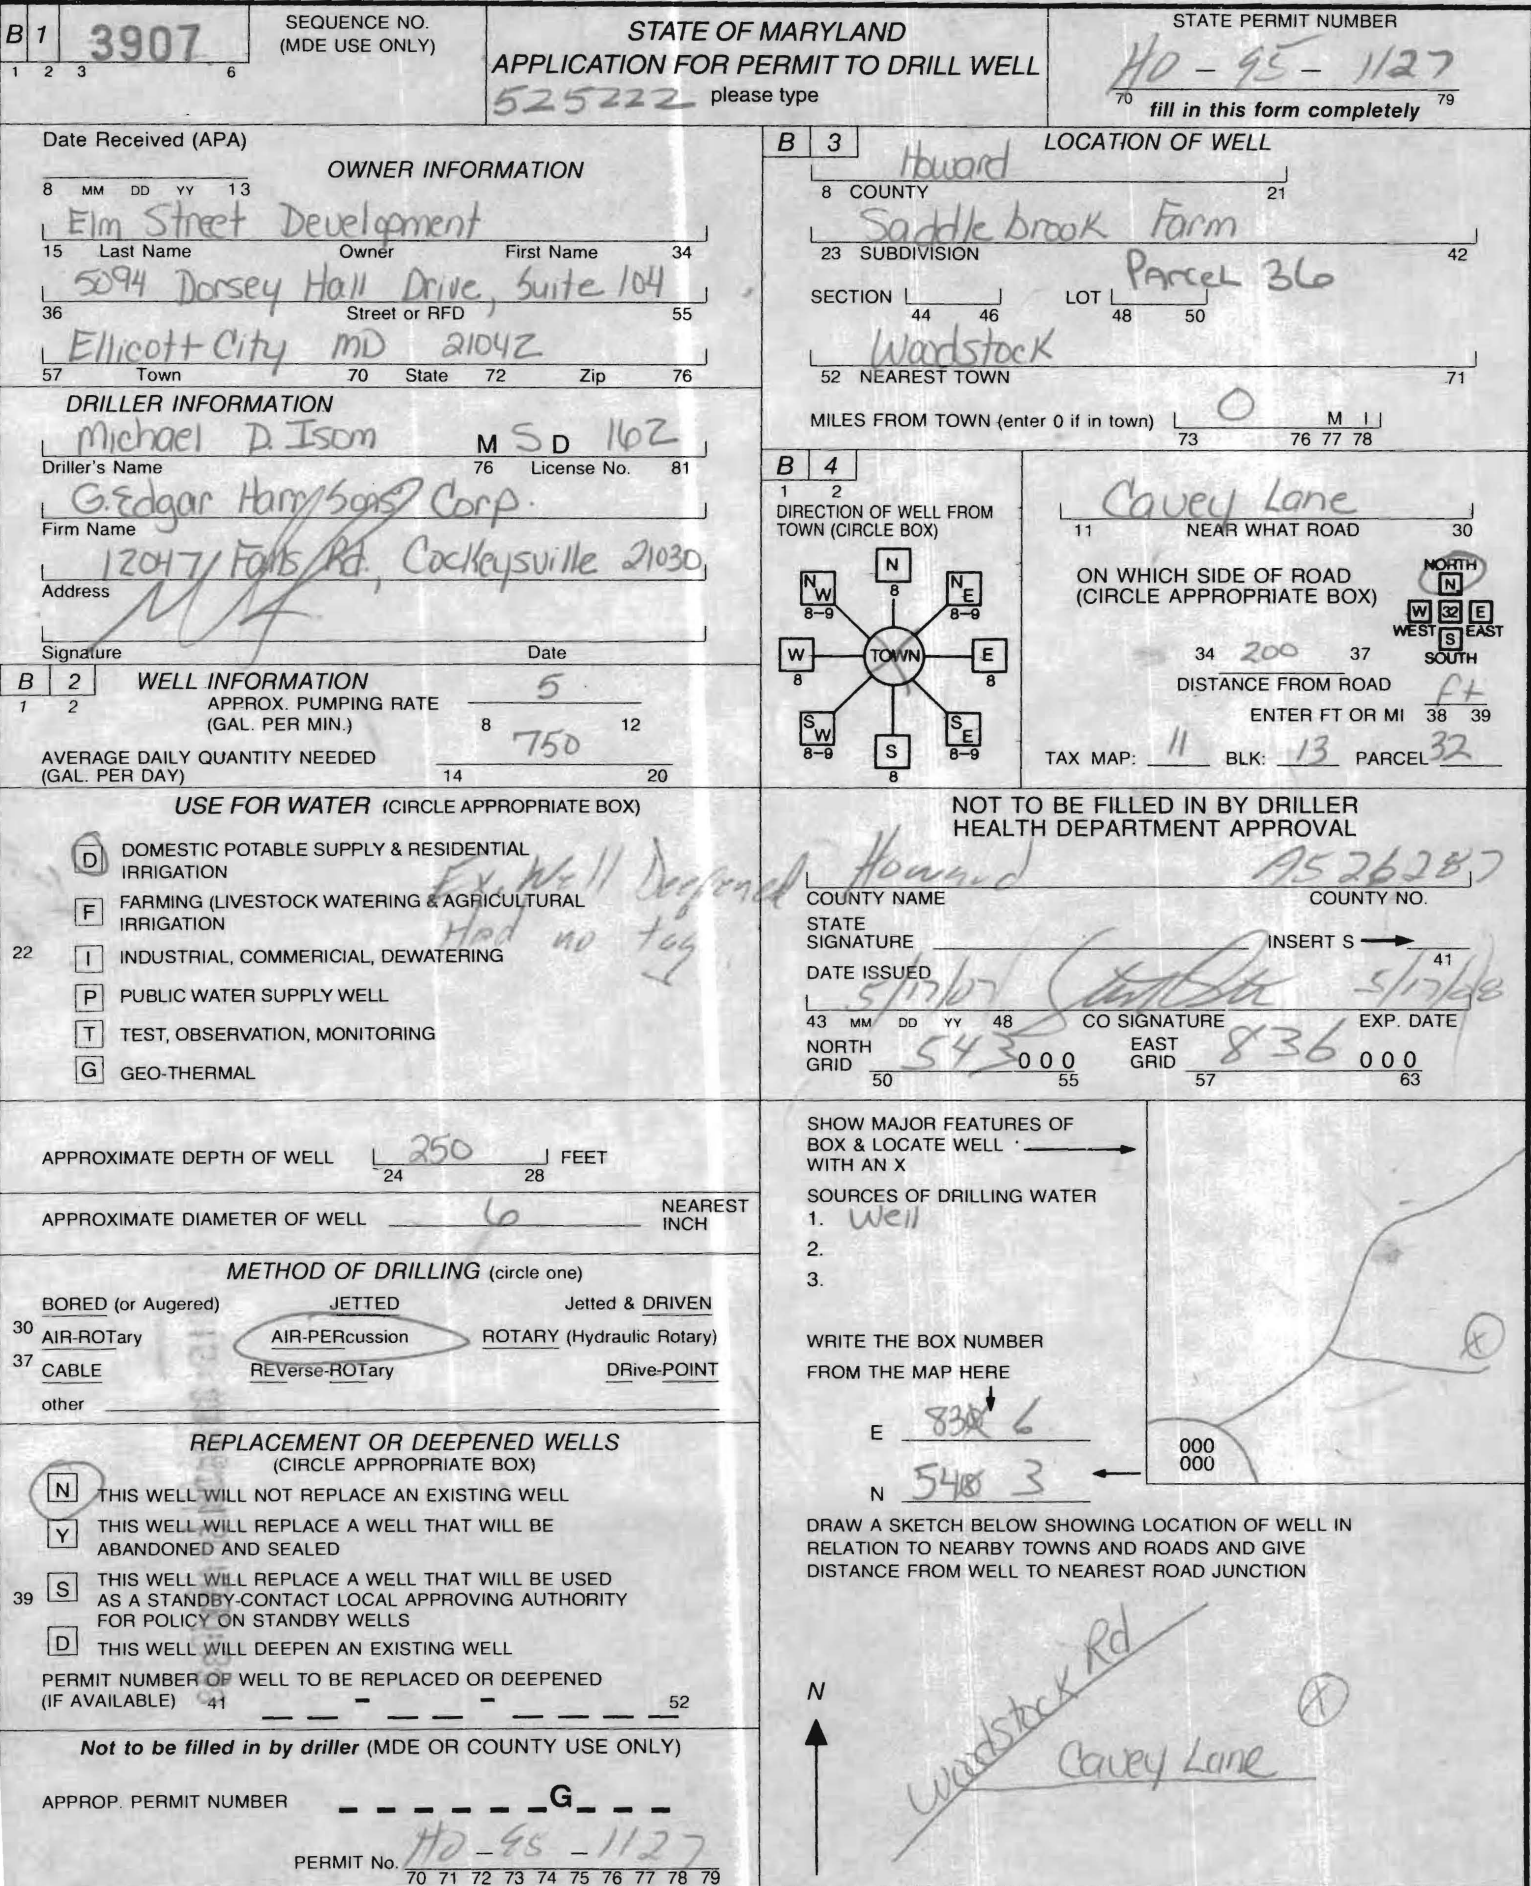 B 1 3907
1 2 3 6
SEQUENCE NO.
(MDE USE ONLY)
STATE OF MARYLAND
APPLICATION FOR PERMIT TO DRILL WELL
525222 please type
STATE PERMIT NUMBER
HO - 95 - 1127
70 79
fill in this form completely
Date Received (APA)
8 MM DD YY 13
OWNER INFORMATION
Elm Street Development
15 Last Name Owner First Name 34
5094 Dorsey Hall Drive, Suite 104
36 Street or RFD 55
Ellicott City MD 21042
57 Town 70 State 72 Zip 76
DRILLER INFORMATION
Michael D. Isom M S D 162
Driller's Name 76 License No. 81
G. Edgar Harr Sons Corp.
Firm Name
12047 Falls Rd., Cockeysville 21030
Address
Signature Date
B 2 WELL INFORMATION
1 2
APPROX. PUMPING RATE
(GAL. PER MIN.) 5
8 12
AVERAGE DAILY QUANTITY NEEDED
(GAL. PER DAY) 750
14 20
USE FOR WATER (CIRCLE APPROPRIATE BOX)
D DOMESTIC POTABLE SUPPLY & RESIDENTIAL
IRRIGATION
Ex. Well Deepened
F FARMING (LIVESTOCK WATERING & AGRICULTURAL
IRRIGATION
Had no tag
22 I INDUSTRIAL, COMMERICIAL, DEWATERING
P PUBLIC WATER SUPPLY WELL
T TEST, OBSERVATION, MONITORING
G GEO-THERMAL
APPROXIMATE DEPTH OF WELL 250 FEET
24 28
APPROXIMATE DIAMETER OF WELL 6 NEAREST
INCH
METHOD OF DRILLING (circle one)
BORED (or Augered) JETTED Jetted & DRIVEN
30 AIR-ROTary AIR-PERcussion ROTARY (Hydraulic Rotary)
37 CABLE REVerse-ROTary DRive-POINT
other
REPLACEMENT OR DEEPENED WELLS
(CIRCLE APPROPRIATE BOX)
N THIS WELL WILL NOT REPLACE AN EXISTING WELL
Y THIS WELL WILL REPLACE A WELL THAT WILL BE
ABANDONED AND SEALED
39 S THIS WELL WILL REPLACE A WELL THAT WILL BE USED
AS A STANDBY-CONTACT LOCAL APPROVING AUTHORITY
FOR POLICY ON STANDBY WELLS
D THIS WELL WILL DEEPEN AN EXISTING WELL
PERMIT NUMBER OF WELL TO BE REPLACED OR DEEPENED
(IF AVAILABLE) 41 - - 52
Not to be filled in by driller (MDE OR COUNTY USE ONLY)
APPROP. PERMIT NUMBER G
PERMIT No. HO - 95 - 1127
70 71 72 73 74 75 76 77 78 79
B 3 LOCATION OF WELL
Howard
8 COUNTY 21
Saddlebrook Farm
23 SUBDIVISION 42
SECTION LOT Parcel 36
44 46 48 50
Woodstock
52 NEAREST TOWN 71
MILES FROM TOWN (enter 0 if in town) 0 M I
73 76 77 78
B 4
1 2
DIRECTION OF WELL FROM
TOWN (CIRCLE BOX)
N
8
NW
8-9
NE
8-9
W
8
TOWN
E
8
SW
8-9
SE
8-9
S
8
Cavey Lane
11 NEAR WHAT ROAD 30
ON WHICH SIDE OF ROAD
(CIRCLE APPROPRIATE BOX)
NORTH
N
W 32 E
WEST S EAST
SOUTH
34 200 37
DISTANCE FROM ROAD
ft
ENTER FT OR MI 38 39
TAX MAP: 11 BLK: 13 PARCEL 32
NOT TO BE FILLED IN BY DRILLER
HEALTH DEPARTMENT APPROVAL
Howard A526287
COUNTY NAME COUNTY NO.
STATE
SIGNATURE INSERT S
41
DATE ISSUED
5/17/07 5/17/08
43 MM DD YY 48 CO SIGNATURE EXP. DATE
NORTH
GRID 543 000
50 55
EAST
GRID 836 000
57 63
SHOW MAJOR FEATURES OF
BOX & LOCATE WELL
WITH AN X
SOURCES OF DRILLING WATER
1. Well
2.
3.
X
WRITE THE BOX NUMBER
FROM THE MAP HERE
E 83 6
N 54 3
000
000
DRAW A SKETCH BELOW SHOWING LOCATION OF WELL IN
RELATION TO NEARBY TOWNS AND ROADS AND GIVE
DISTANCE FROM WELL TO NEAREST ROAD JUNCTION
N
Woodstock Rd
X
Cavey Lane